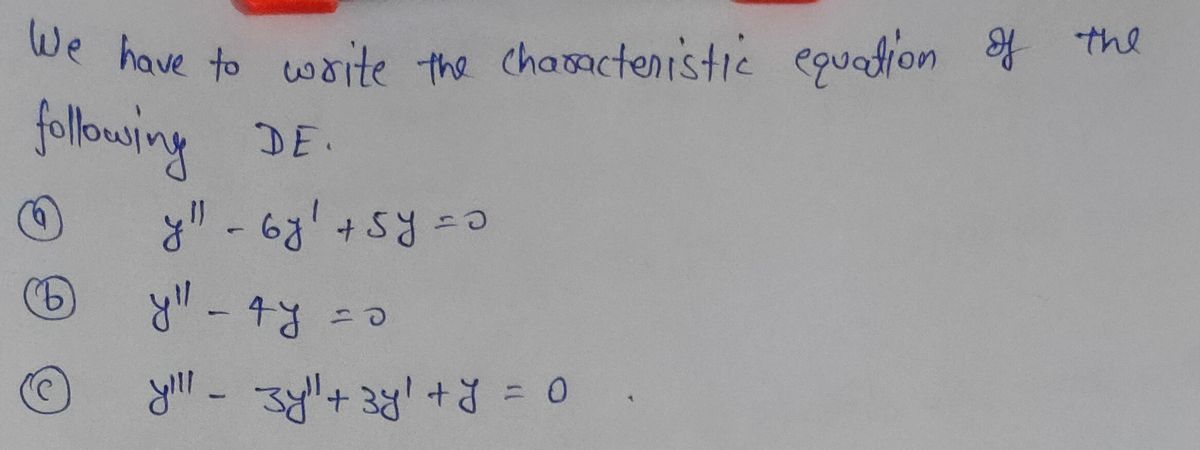 We have to write the characteristic equation of the
following DE.
(a) y'' - 6y' + 5y = 0
(b) y'' - 4y = 0
(c) y''' - 3y'' + 3y' + y = 0 .